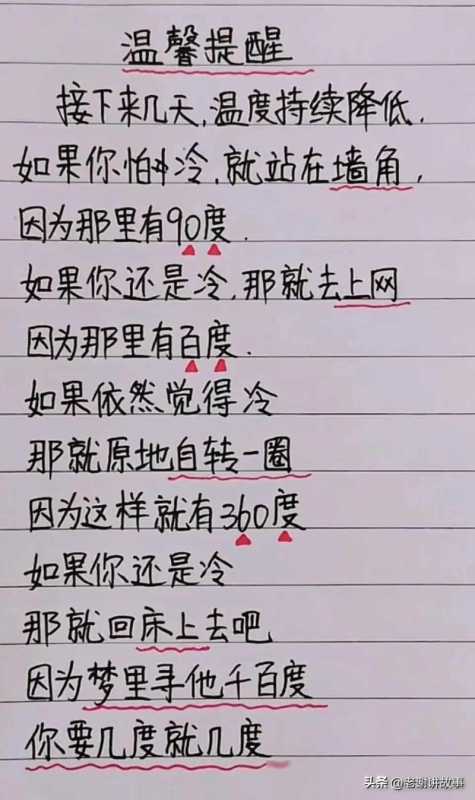 温馨提醒
接下来几天,温度持续降低.
如果你怕冷,就站在墙角,
因为那里有90度.
如果你还是冷,那就去上网
因为那里有百度.
如果依然觉得冷
那就原地自转一圈
因为这样就有360度
如果你还是冷
那就回床上去吧
因为梦里寻他千百度
你要几度就几度
头条 @老谢讲故事